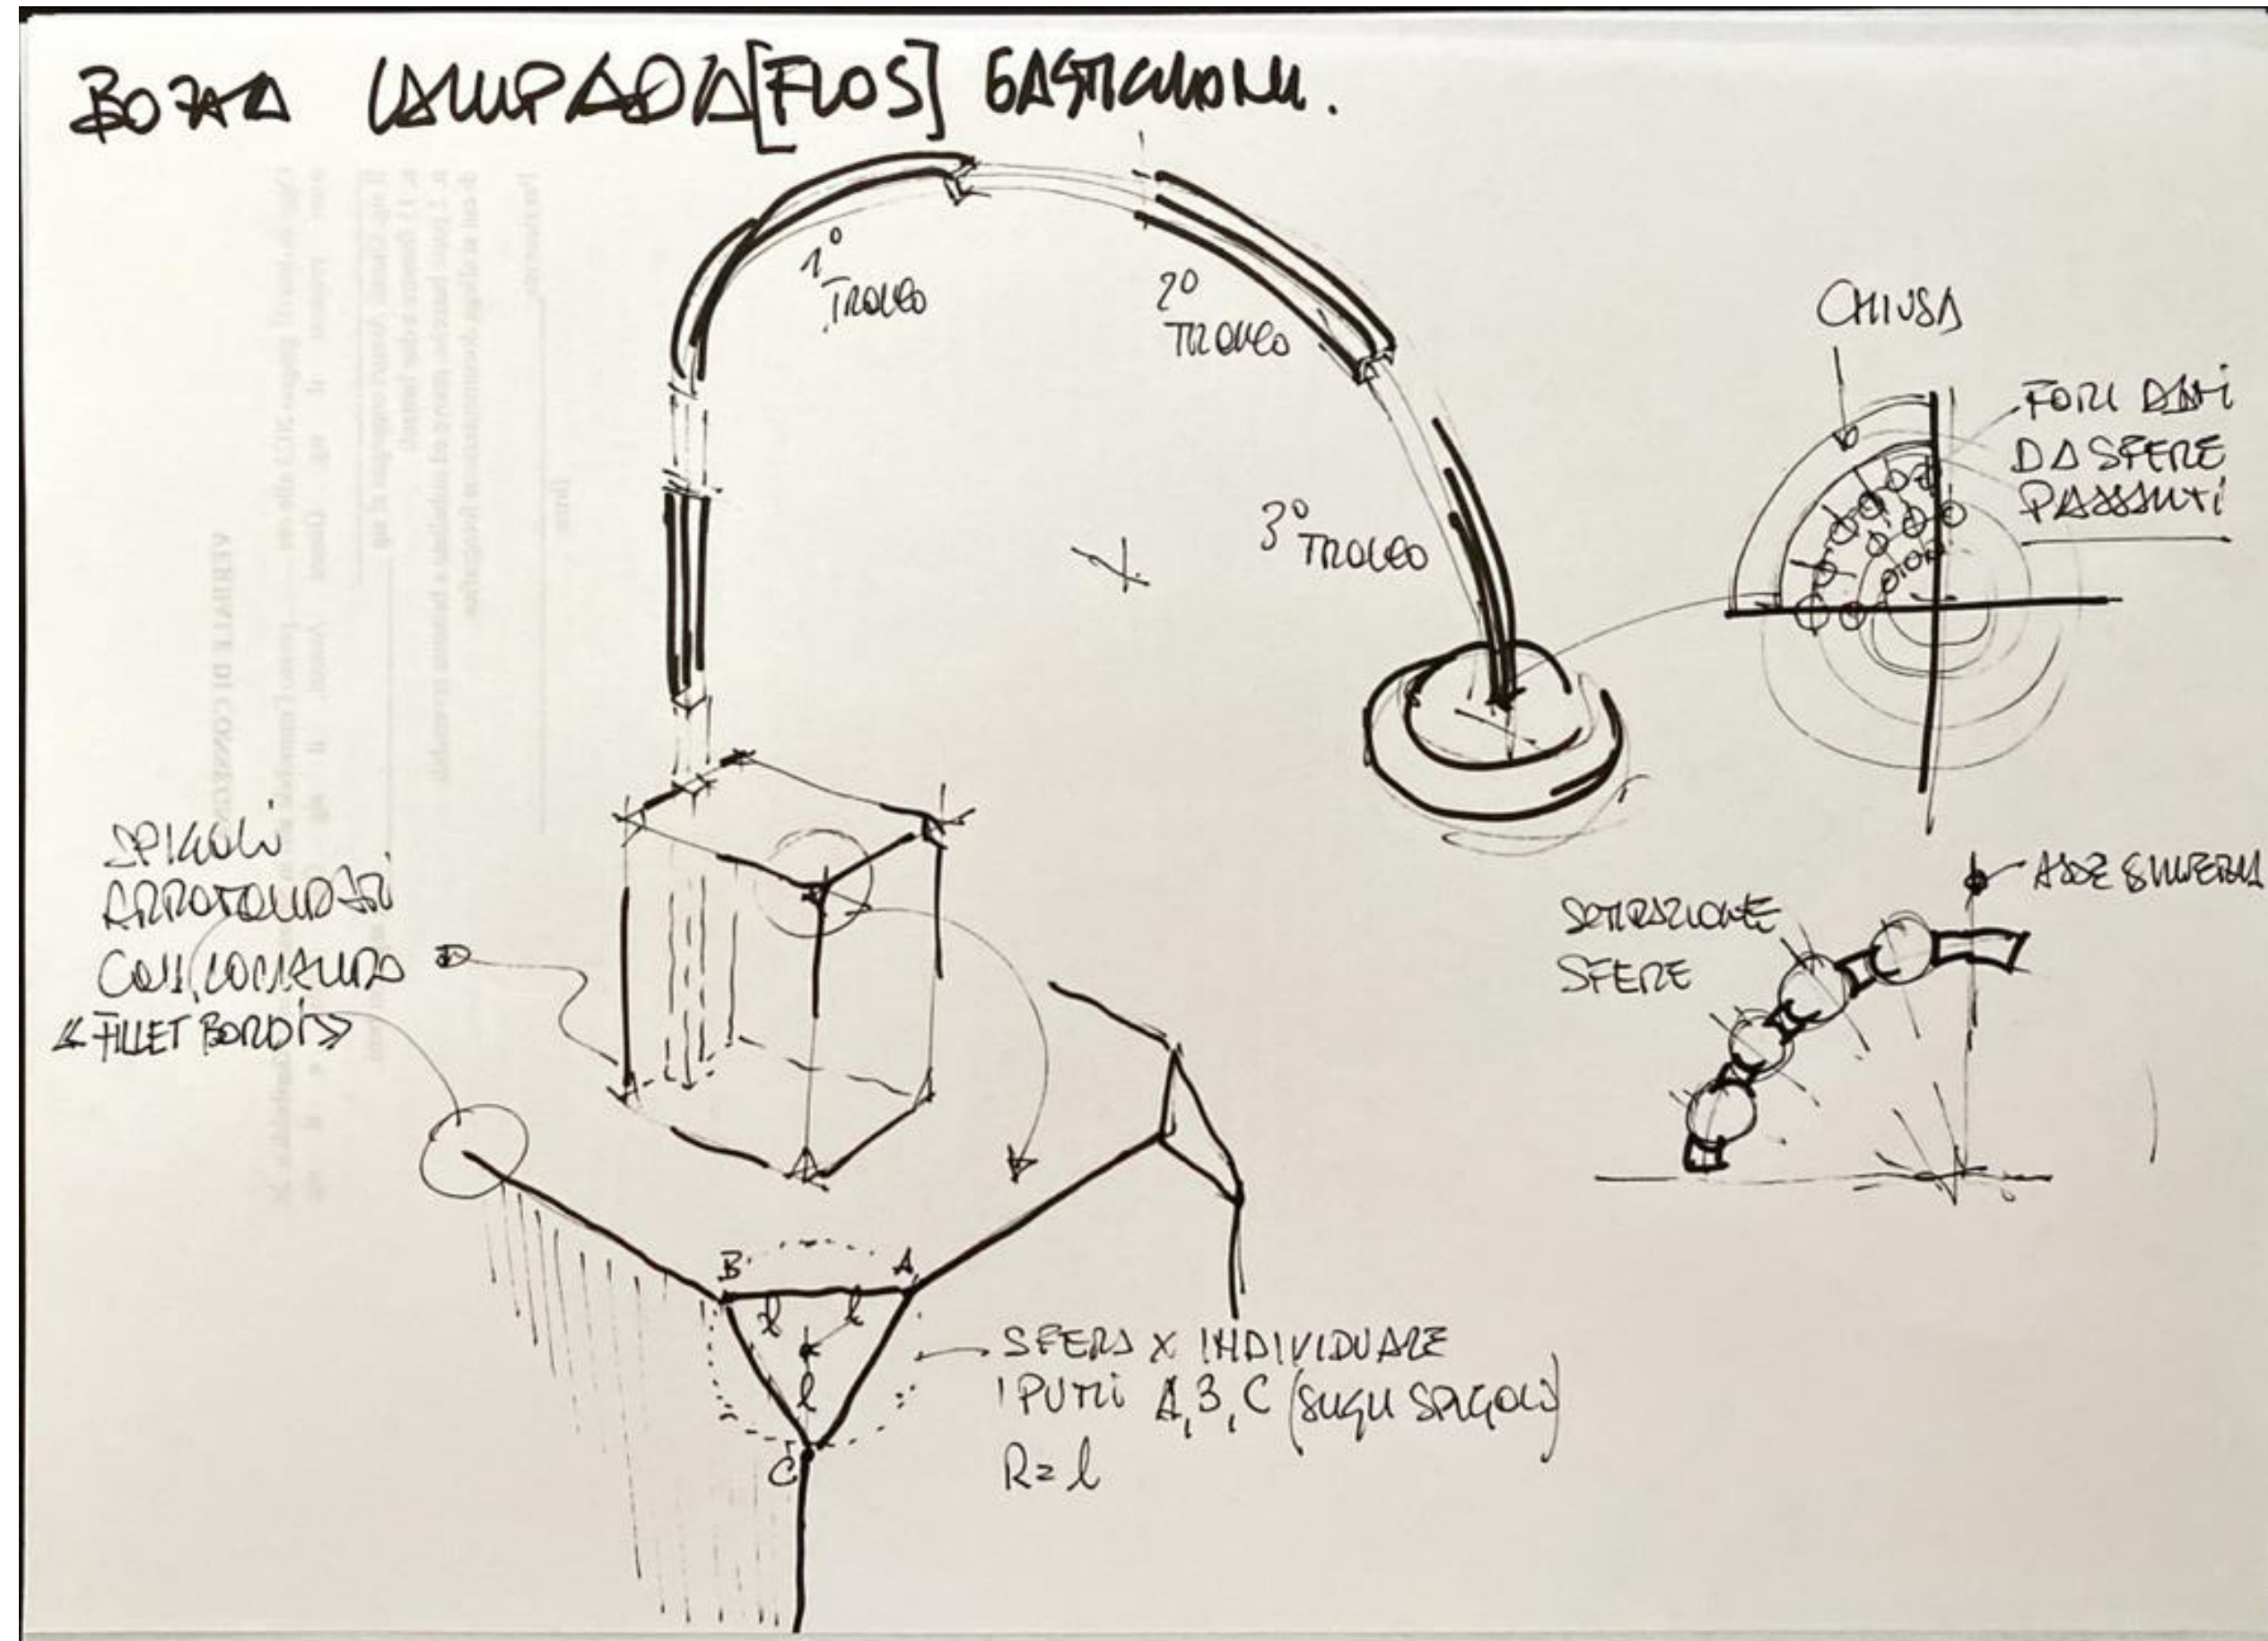 BOZZA LAMPADA [FLOS] CASTIGLIONI.
1° TRONCO
2° TRONCO
3° TRONCO
CHIUSA
FORI DATI
DA SFERE
PASSANTI
SPIGOLI
ARROTONDATI
CON COMANDO
"FILLET BORDI"
SOTTRAZIONE
SFERE
ASSE SIMMETRIA
B
A
l
l
l
C
SFERA X INDIVIDUARE
I PUNTI A, B, C (SUGLI SPIGOLI)
R = l
ATTIVITÀ DI CONSEGNA